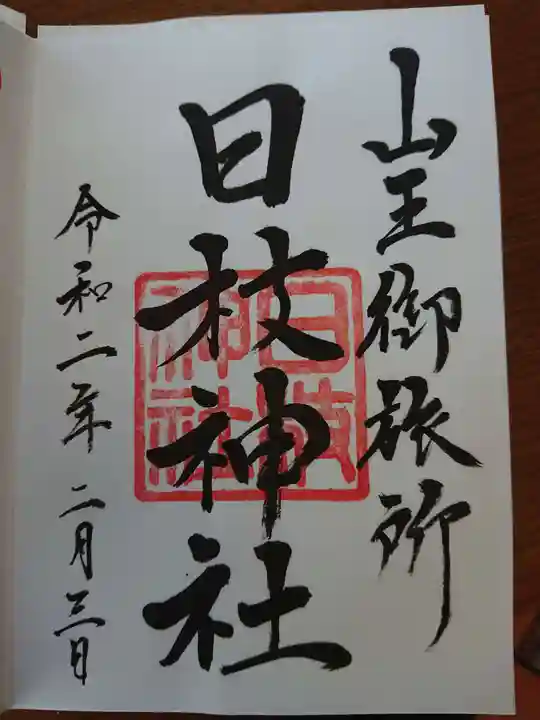 山王御旅所
日枝神社
日枝神社
令和二年二月三日